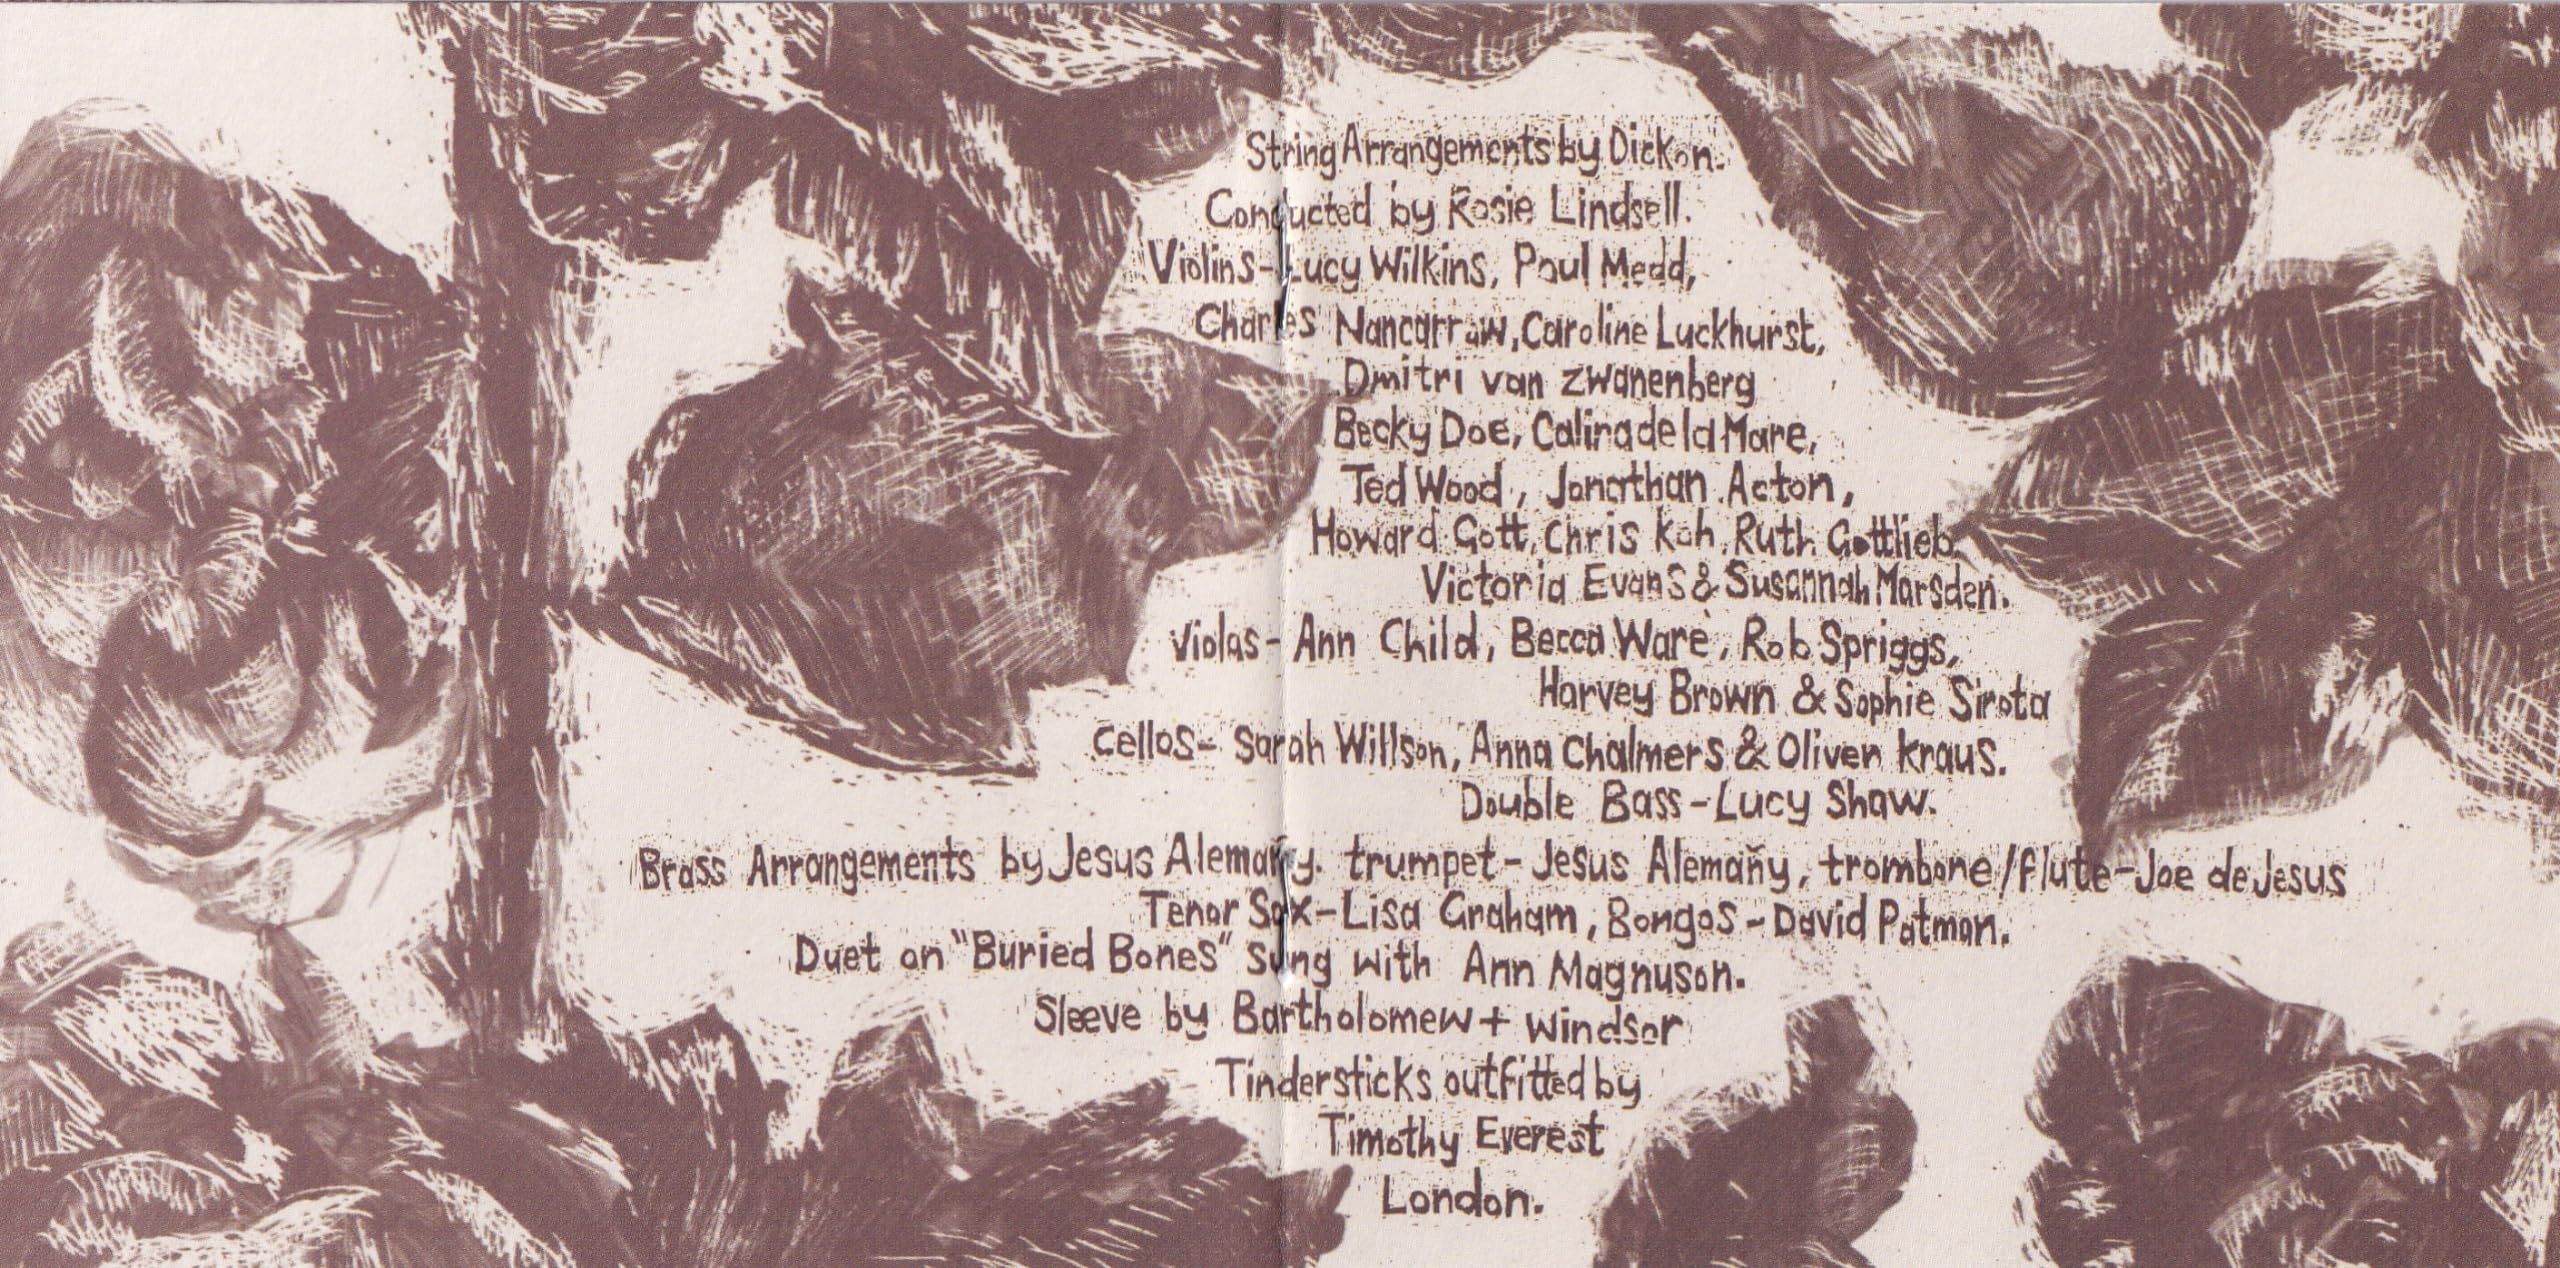 String Arrangements by Dickon.
Conducted by Rosie Lindsell.
Violins - Lucy Wilkins, Paul Medd,
Charles Nancarrow, Caroline Luckhurst,
Dmitri van Zwanenberg
Becky Doe, Calina de la Mare,
Ted Wood, Jonathan Acton,
Howard Gott, Chris Koh, Ruth Gottlieb,
Victoria Evans & Susannah Marsden.
Violas - Ann Child, Becca Ware, Rob Spriggs,
Harvey Brown & Sophie Sirota
Cellos - Sarah Willson, Anna Chalmers & Oliver Kraus.
Double Bass - Lucy Shaw.
Brass Arrangements by Jesus Alemañy. trumpet - Jesus Alemañy, trombone/flute - Joe de Jesus
Tenor Sax - Lisa Graham, Bongos - David Patman.
Duet on "Buried Bones" sung with Ann Magnuson.
Sleeve by Bartholomew + Windsor
Tindersticks outfitted by
Timothy Everest
London.